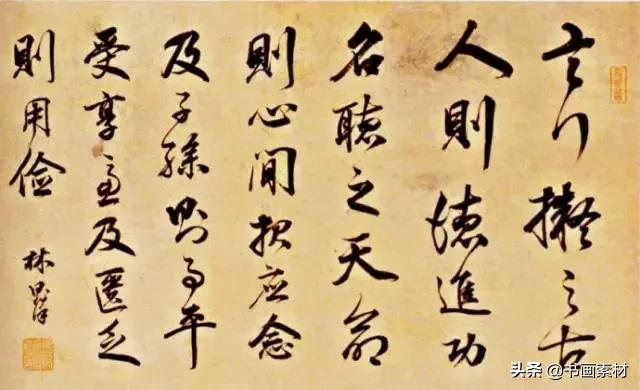 言行擬之古
人則德進功
名聽之天命
則心閒報應念
及子孫則事平
受享慮及匱乏
則用儉
林則徐
头条 @书画素材